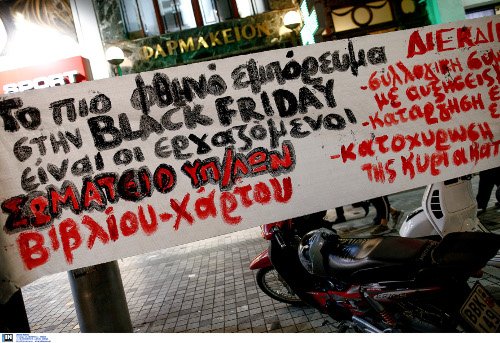 ΦΑΡΜΑΚΕΙΟΝ
SPORT
Το πιο φθηνό εμπόρευμα
στην BLACK FRIDAY
είναι οι εργαζόμενοι
ΣΩΜΑΤΕΙΟ ΥΠ/ΛΩΝ
Βιβλίου-Χάρτου
ΔΙΕΚΔΙ
-συλλογική συμ
με αυξήσεις
-κατάργηση
-κατοχύρωση
της κυριακάτ